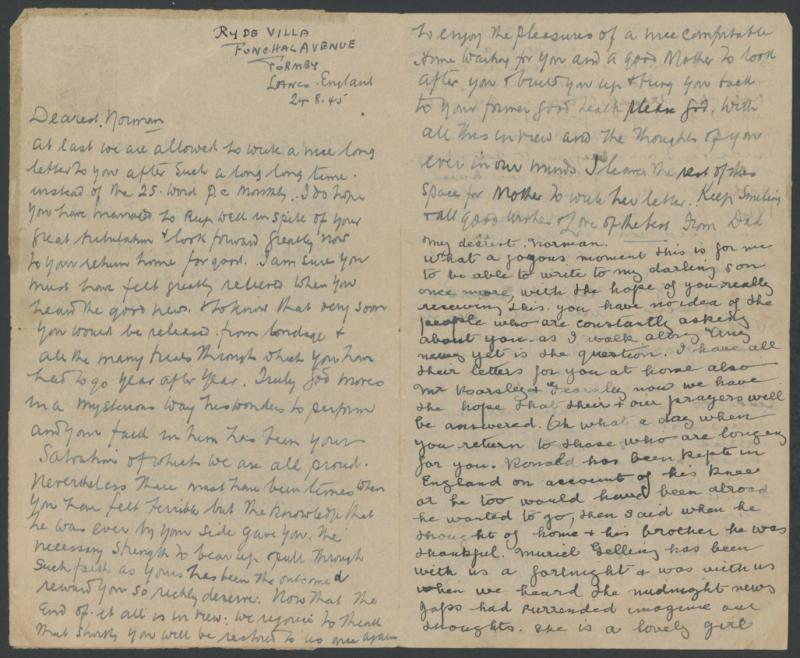 RYDE VILLA
FUNCHAL AVENUE
FORMBY
Lancs. England
24.8.45
Dearest Norman
At last we are allowed to write a nice long
letter to you after such a long long time.
instead of the 25 word P.C Monthly. I do hope
you have managed to keep well in spite of your
great tribulation & look forward greatly now
to your return home for good. I am sure you
must have felt greatly relieved when you
heard the good news. To know that very soon
you would be released from bondage &
all the many trials through which you have
had to go year after year. Truly God moves
in a mysterious way his wonders to perform
and your faith in him has been your
Salvation of which we are all proud.
Nevertheless there must have been times when
you have felt terrible but the knowledge that
he was ever by your side gave you the
necessary strength to bear up & pull through
Such faith as yours has been the outcome &
reward you so richly deserve. Now that the
End of it all is in view. we rejoice to think
that shortly you will be restored to us once again
to enjoy the pleasures of a nice comfortable
Home waiting for you and a good Mother to look
after you & build you up & bring you back
to your former good health please God. With
all this in view and the thoughts of you
ever in our minds I leave the rest of this
space for Mother to write her letter. Keep Smiling
& all good wishes & Love of the best From Dad
My dearest Norman.
What a joyous moment this is for me
to be able to write to my darling son
once more, with the hope of you really
receiving this. you have no idea of the
people who are constantly asking
about you. as I walk along "Any
news yet is the question. I have all
their letters for you at home also
Mr Karsley & now we have
the hope that their & our prayers will
be answered. Oh what a day when
you return to those who are longing
for you. Ronald has been kept in
England on account of his knee
or he too would have been abroad
he wanted to go, then I said when he
thought of home & his brother he was
thankful. Muriel Gelling has been
with us a fortnight & was with us
when we heard the midnight news
Japs had surrended imagine our
thoughts. she is a lovely girl